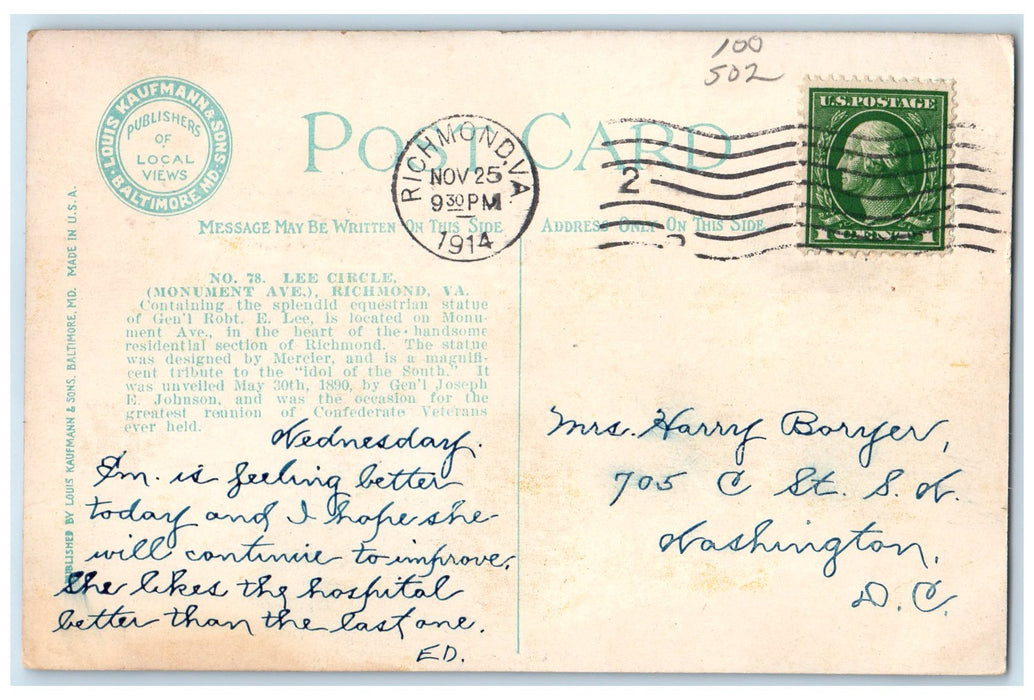 100
502
LOUIS KAUFMANN & SONS
PUBLISHERS
OF
LOCAL
VIEWS
BALTIMORE MD.
POST CARD
RICHMOND, VA
NOV 25
9 30 PM
1914
2
U.S. POSTAGE
1 CENT 1
MESSAGE MAY BE WRITTEN ON THIS SIDE
ADDRESS ONLY ON THIS SIDE
PUBLISHED BY LOUIS KAUFMANN & SONS. BALTIMORE, MD. MADE IN U. S. A.
NO. 78. LEE CIRCLE,
(MONUMENT AVE.), RICHMOND, VA.
Containing the splendid equestrian statue
of Gen'l Robt. E. Lee, is located on Monu-
ment Ave., in the heart of the handsome
residential section of Richmond. The statue
was designed by Mercier, and is a magnifi-
cent tribute to the "idol of the South." It
was unveiled May 30th, 1890, by Gen'l Joseph
E. Johnson, and was the occasion for the
greatest reunion of Confederate Veterans
ever held.
Wednesday.
Em. is feeling better
today and I hope she
will continue to improve.
She likes the hospital
better than the last one.
ED.
Mrs. Harry Boryer,
705 C St. S. W.
Washington,
D. C.